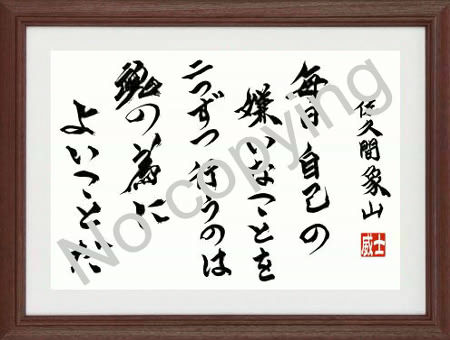 佐久間象山
毎日自己の
嫌いなことを
二つずつ行うのは
魂の為に
よいことだ
威士
No copying